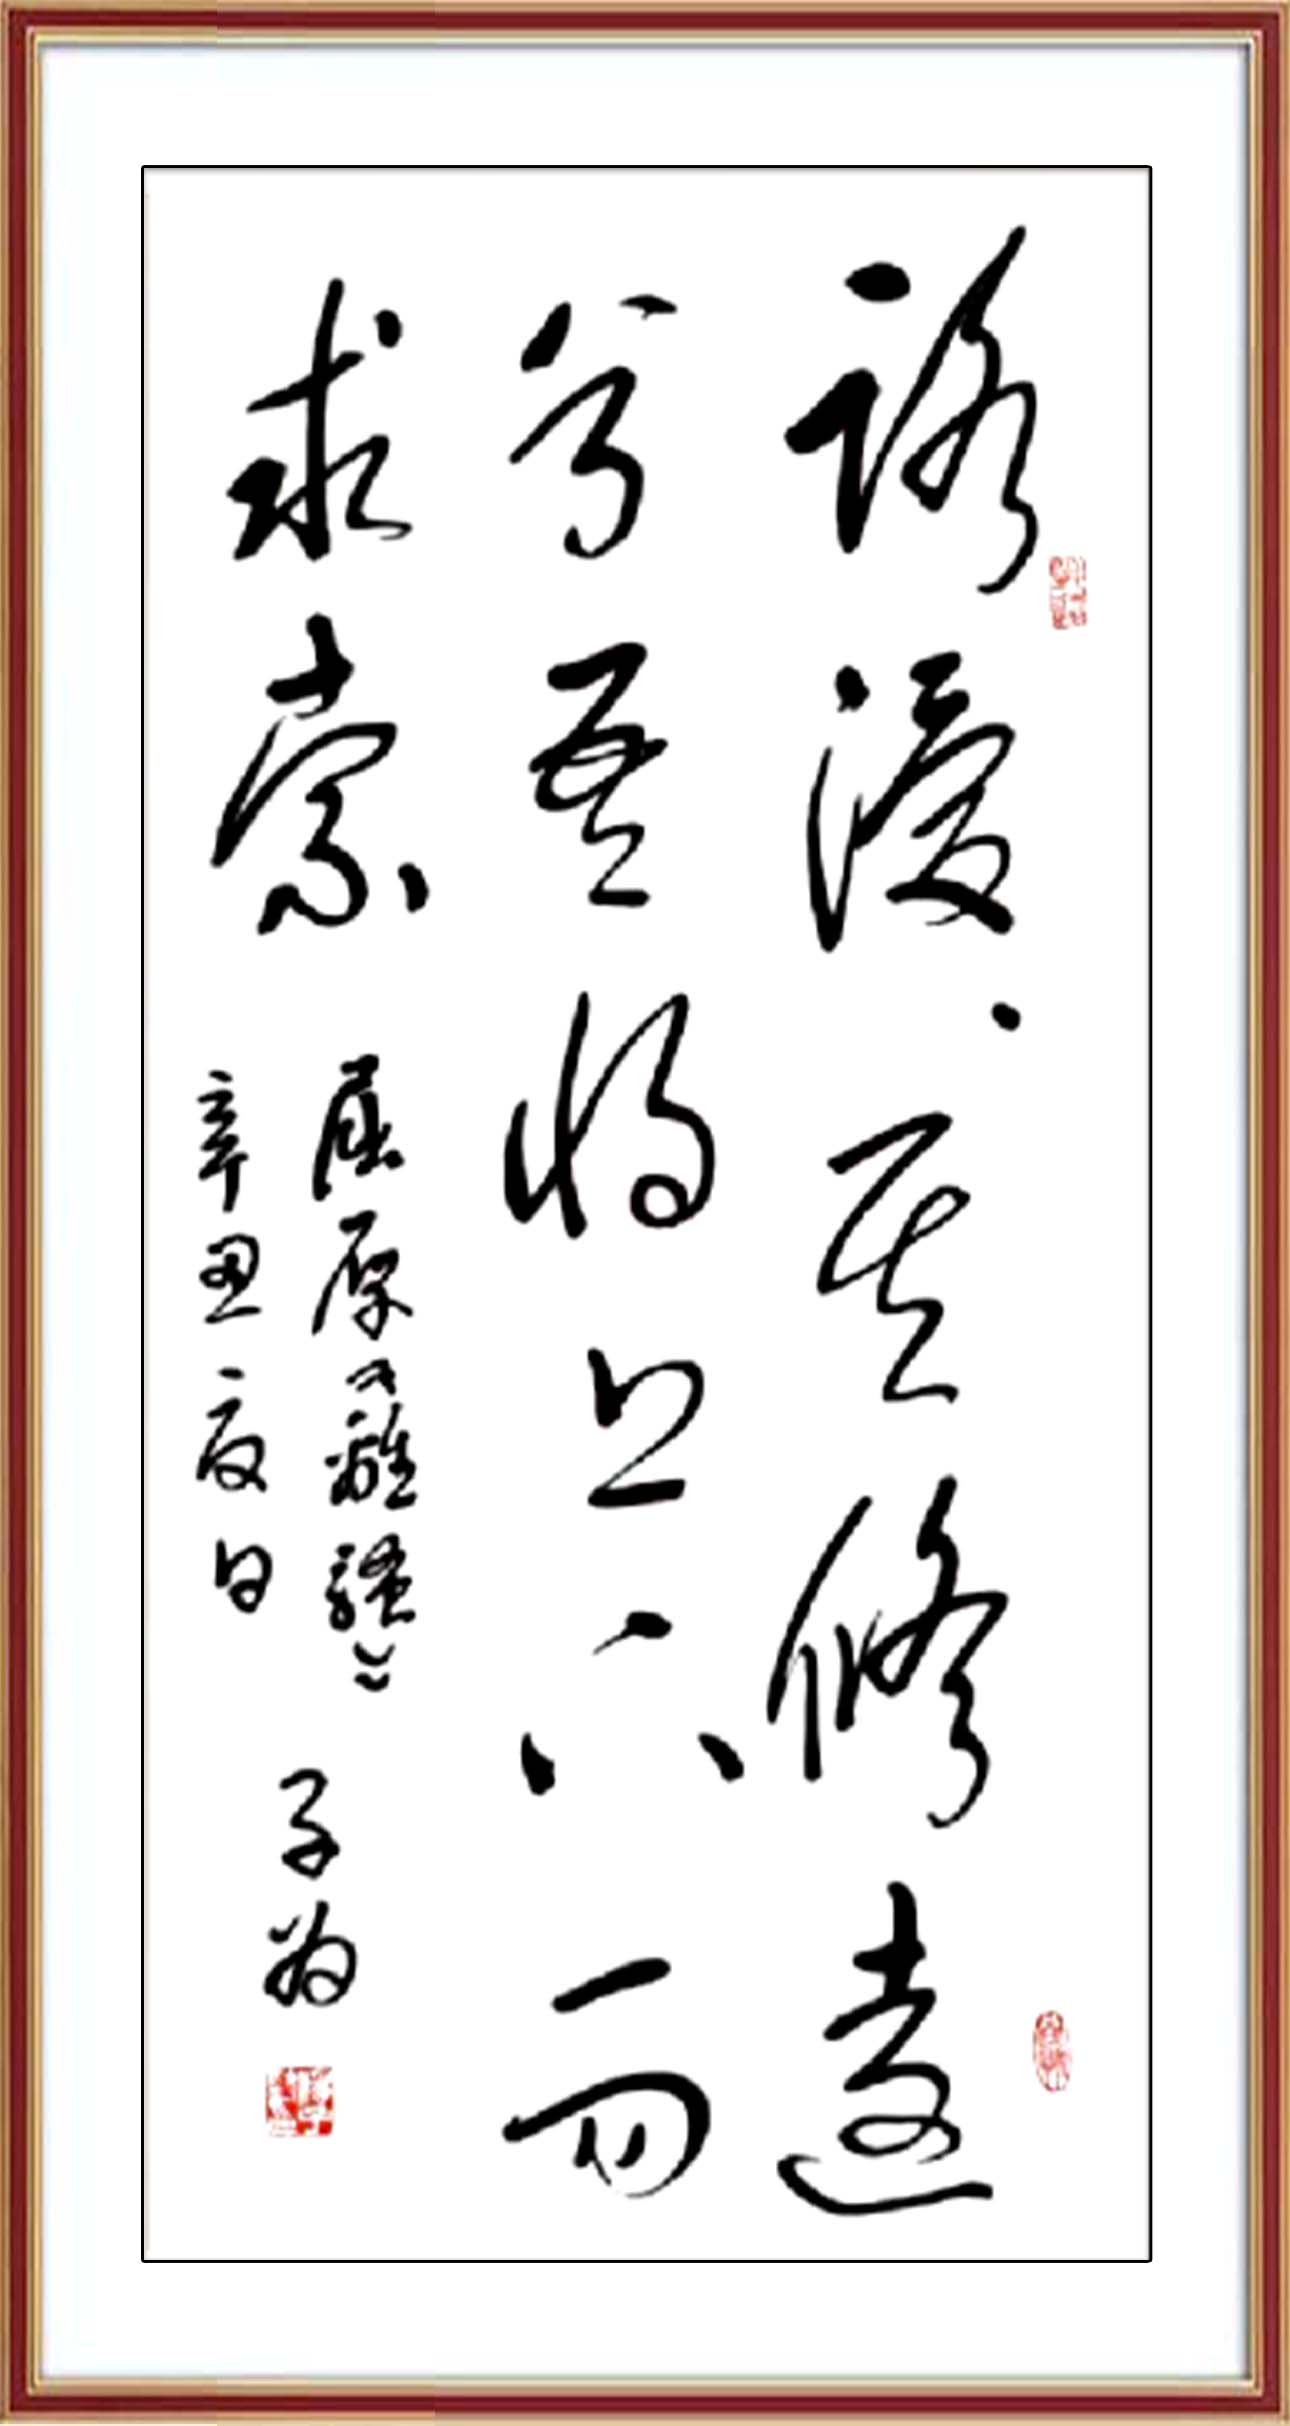 路漫漫其修遠
兮吾将上下而
求索
屈原《離騷》
辛丑夏日
子为